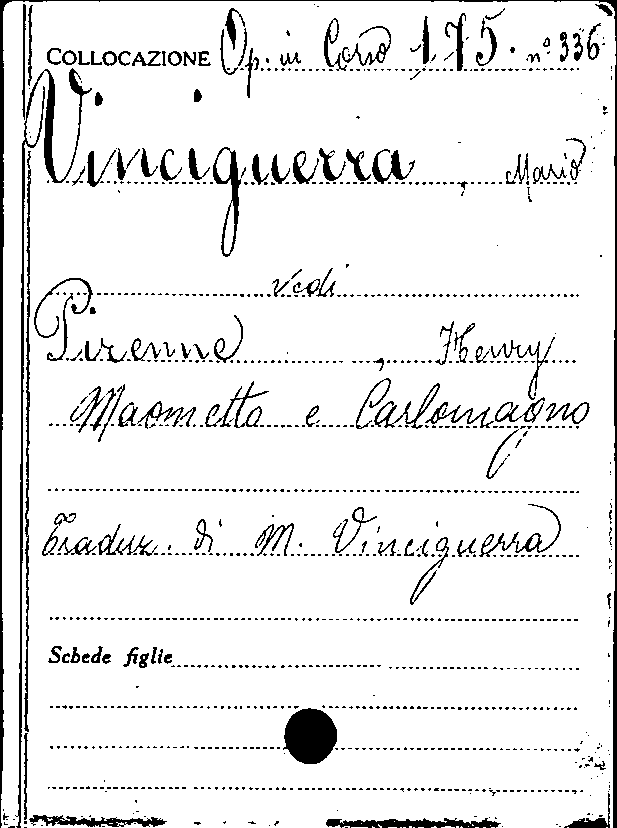 COLLOCAZIONE Op. in Corso 175. nº 336
Vinciguerra, Mario
vedi
Pirenne, Henry
Maometto e Carlomagno
Traduz. di M. Vinciguerra
Schede figlie